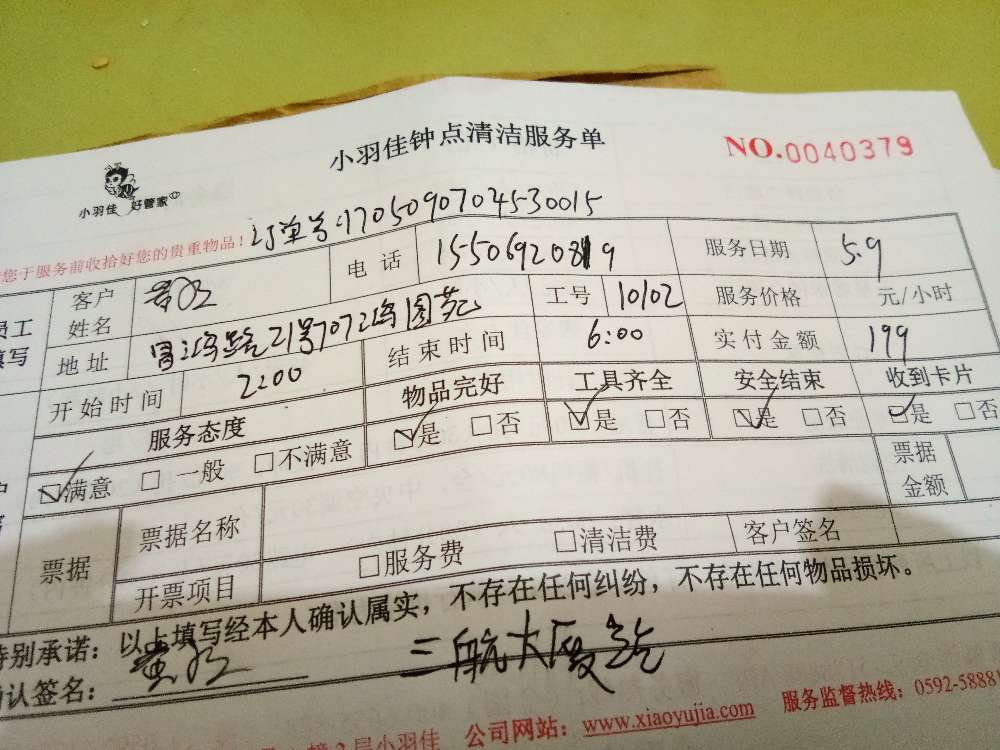 小羽佳钟点清洁服务单
NO.0040379
小羽佳 好管家
您于服务前收拾好您的贵重物品！
订单号:1705090704530015
员工 填写
客户姓名
电话 15506920819 服务日期 5.9
地址 21号707 工号 10102 服务价格 元/小时
开始时间 2:00 结束时间 6:00 实付金额 199
服务态度 物品完好 工具齐全 安全结束 收到卡片
☑满意 □一般 □不满意 ☑是 □否 ☑是 □否 ☑是 □否 ☑是 □否
票据 票据名称 票据金额
开票项目 □服务费 □清洁费 客户签名
特别承诺：以上填写经本人确认属实，不存在任何纠纷，不存在任何物品损坏。
确认签名： 三航大厦
2层小羽佳 公司网站：www.xiaoyujia.com 服务监督热线：0592-58881